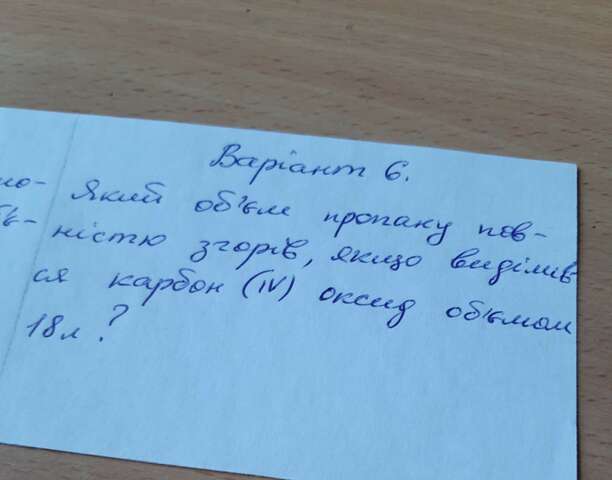 Варіант 6.
Який об'єм пропану пов-
ністю згорів, якщо виділив
ся карбон (IV) оксид об'ємом
18л?